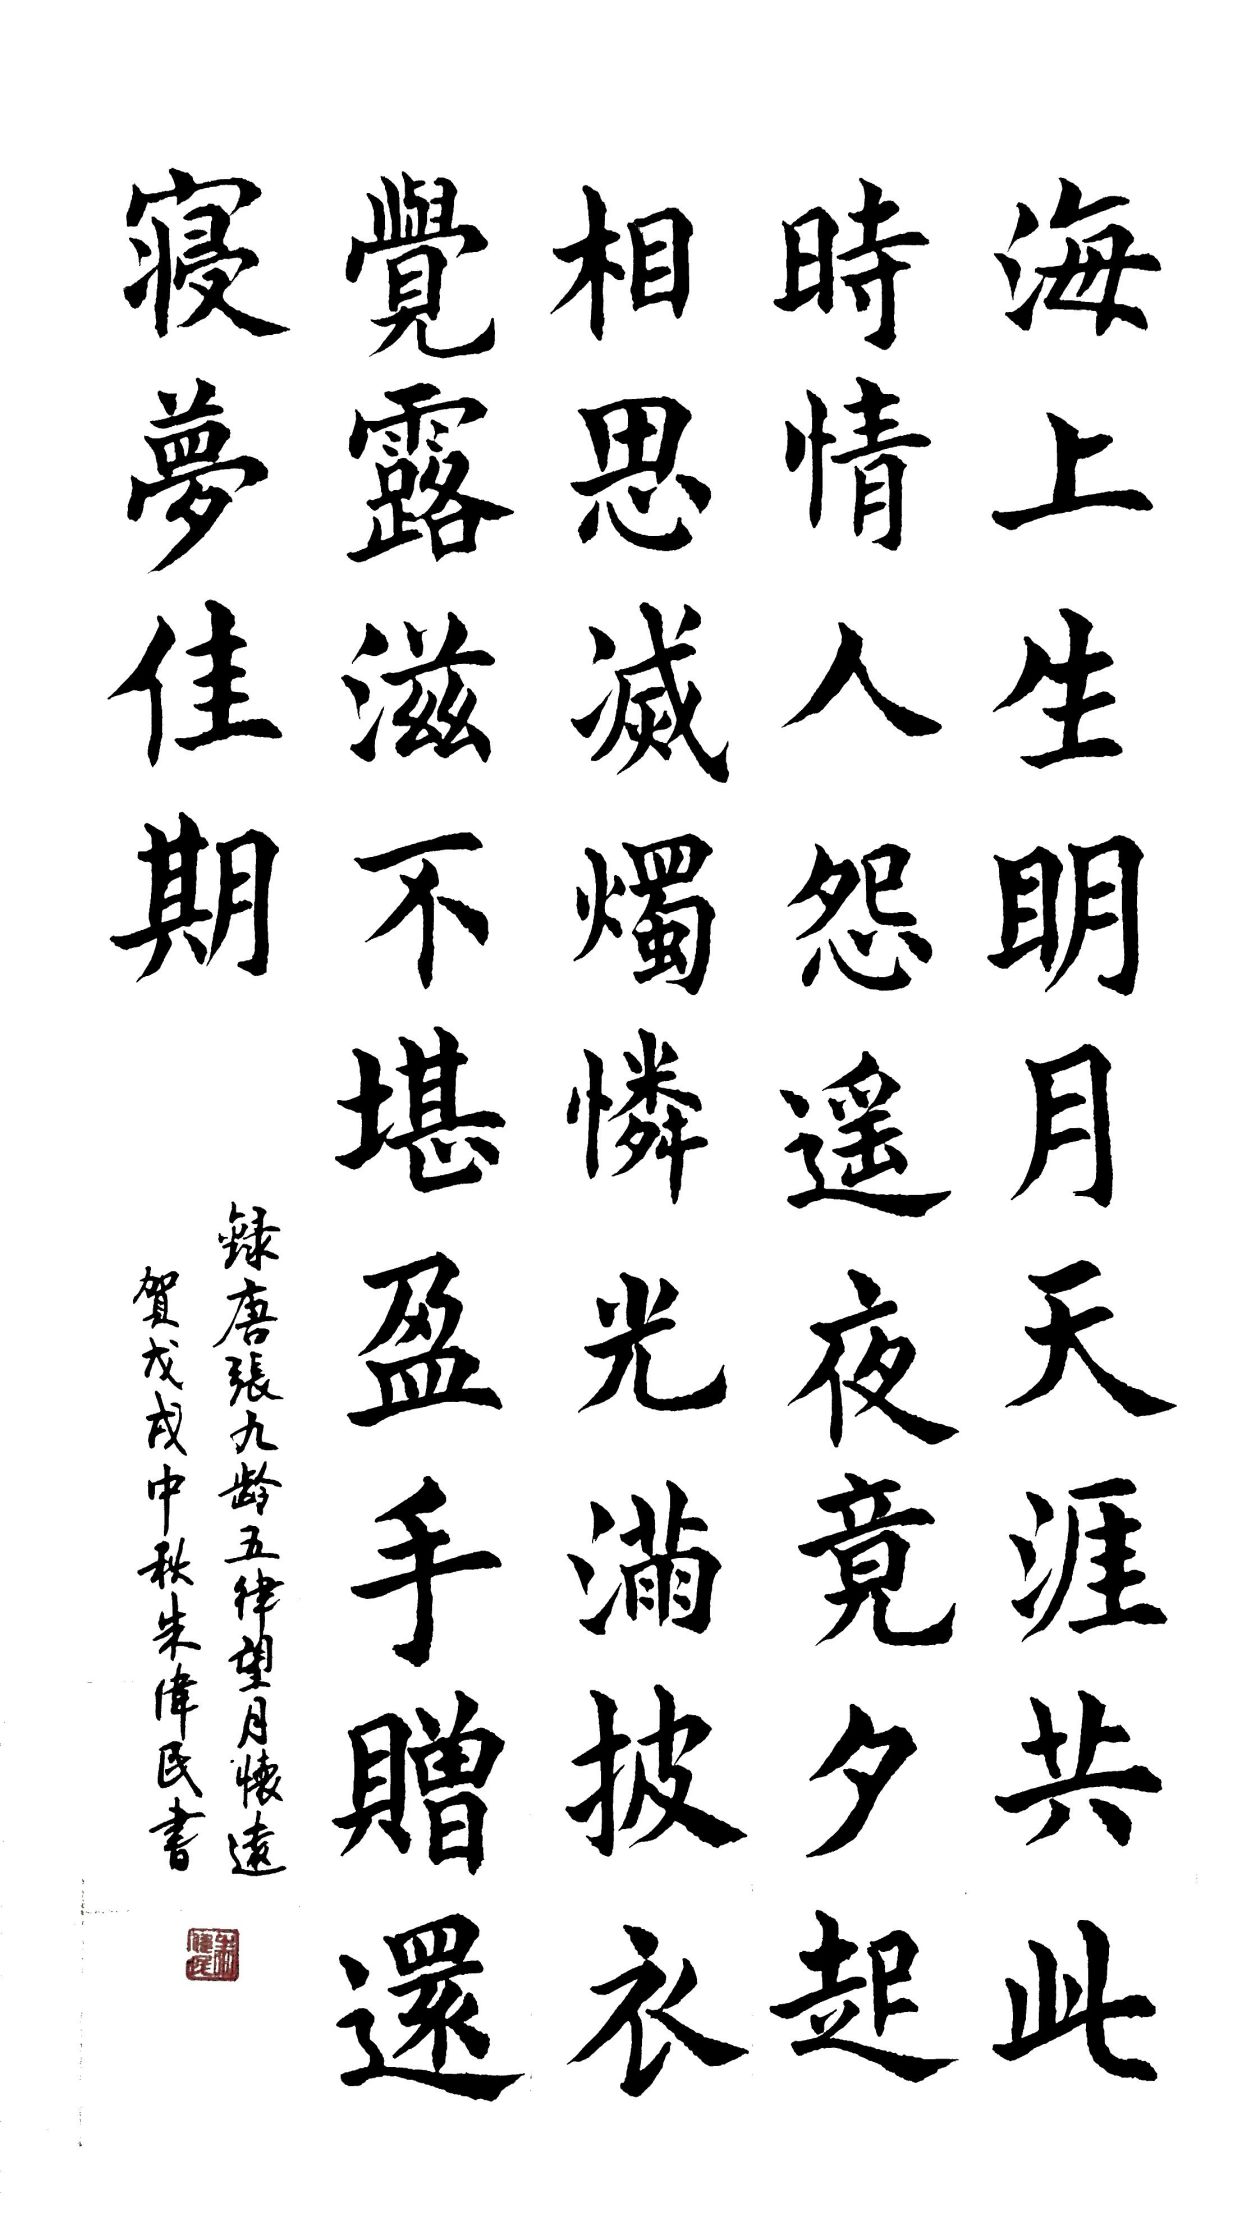 海上生明月天涯共此
時情人怨遥夜竟夕起
相思滅燭憐光滿披衣
覺露滋不堪盈手贈還
寝夢佳期
録唐張九龄五律望月懐遠
賀戊戌中秋朱偉民書
朱偉民